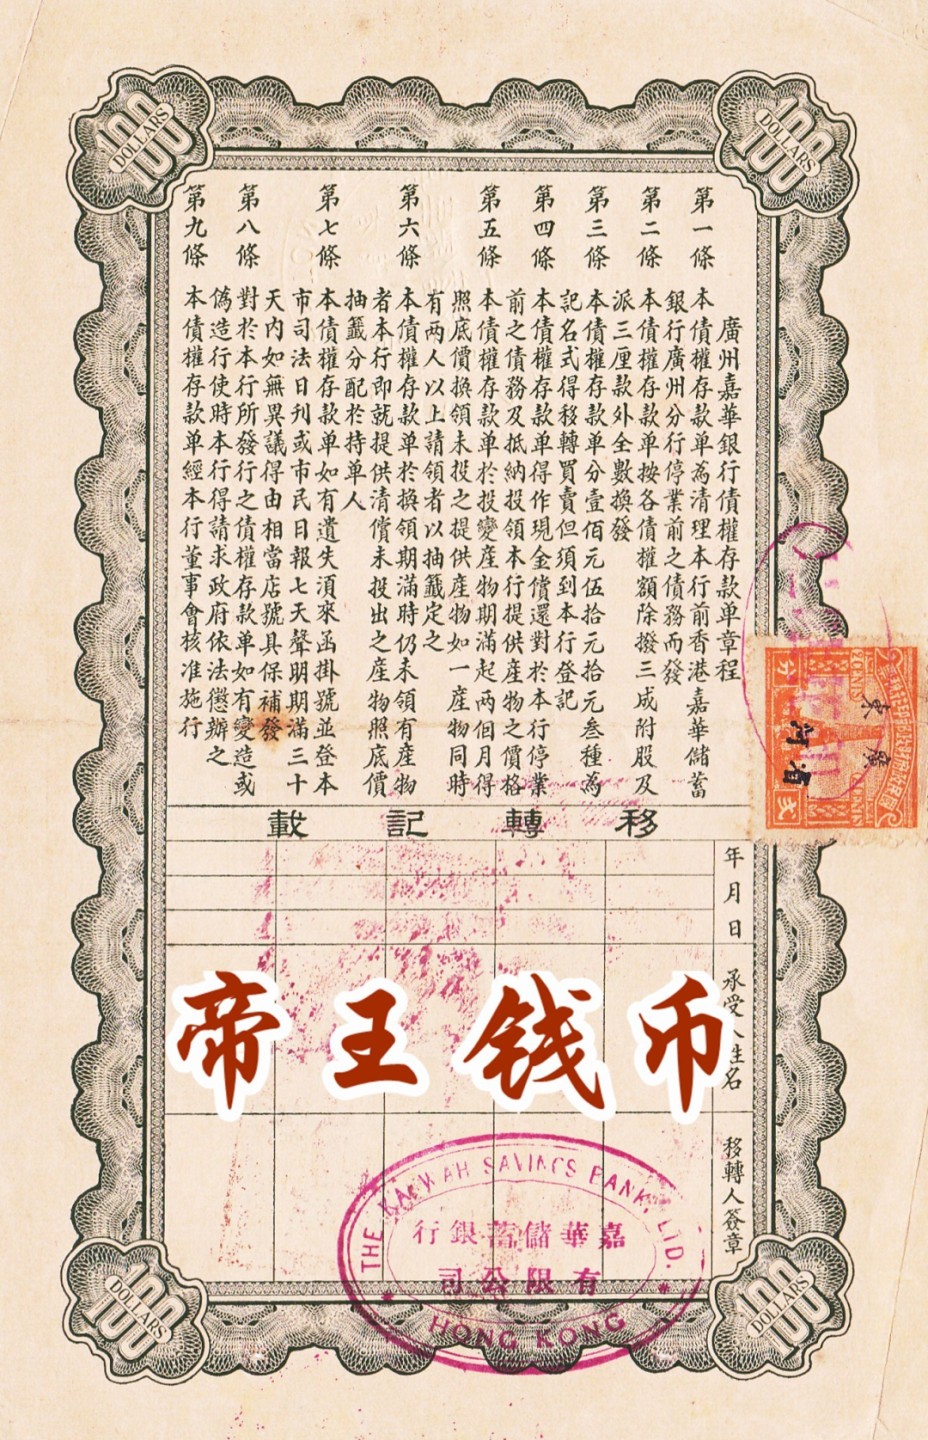 100 DOLLARS
100 DOLLARS
廣州嘉華銀行債權存款单章程
第一條 本債權存款单為清理本行前香港嘉華儲蓄
銀行廣州分行停業前之債務而發
第二條 本債權存款单按各債權額除撥三成附股及
派三厘款外全數換發
第三條 本債權存款单分壹佰元伍拾元拾元叁種為
記名式得移轉買賣但須到本行登記
第四條 本債權存款单得作現金償還對於本行停業
前之債務及抵納投領本行提供產物之價格
第五條 本債權存款单於投變產物期滿起两個月得
照底價換領未投之提供產物如一產物同時
有两人以上請領者以抽籤定之
第六條 本債權存款单於換領期滿時仍未領有產物
者本行即就提供清償未投出之產物照底價
抽籤分配於持单人
第七條 本債權存款单如有遺失須來函掛號並登本
市司法日刊或市民日報七天聲明期滿三十
天內如無異議得由相當店號具保補發
第八條 對於本行所發行之債權存款单如有變造或
偽造行使時本行得請求政府依法懲辦之
第九條 本債權存款单經本行董事會核准施行
移轉記載
年月日
承受人姓名
移轉人簽章
廣東
省河
貳分
2 CENTS
帝王钱币
THE KACWAH SAVINGS BANK, LTD.
嘉華儲蓄銀行
有限公司
HONG KONG
100 DOLLARS
100 DOLLARS